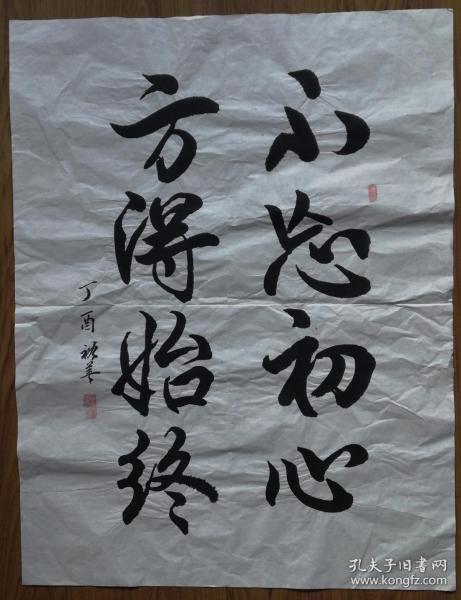 不忘初心
方得始终
丁酉
孔夫子旧书网
www.kongfz.com